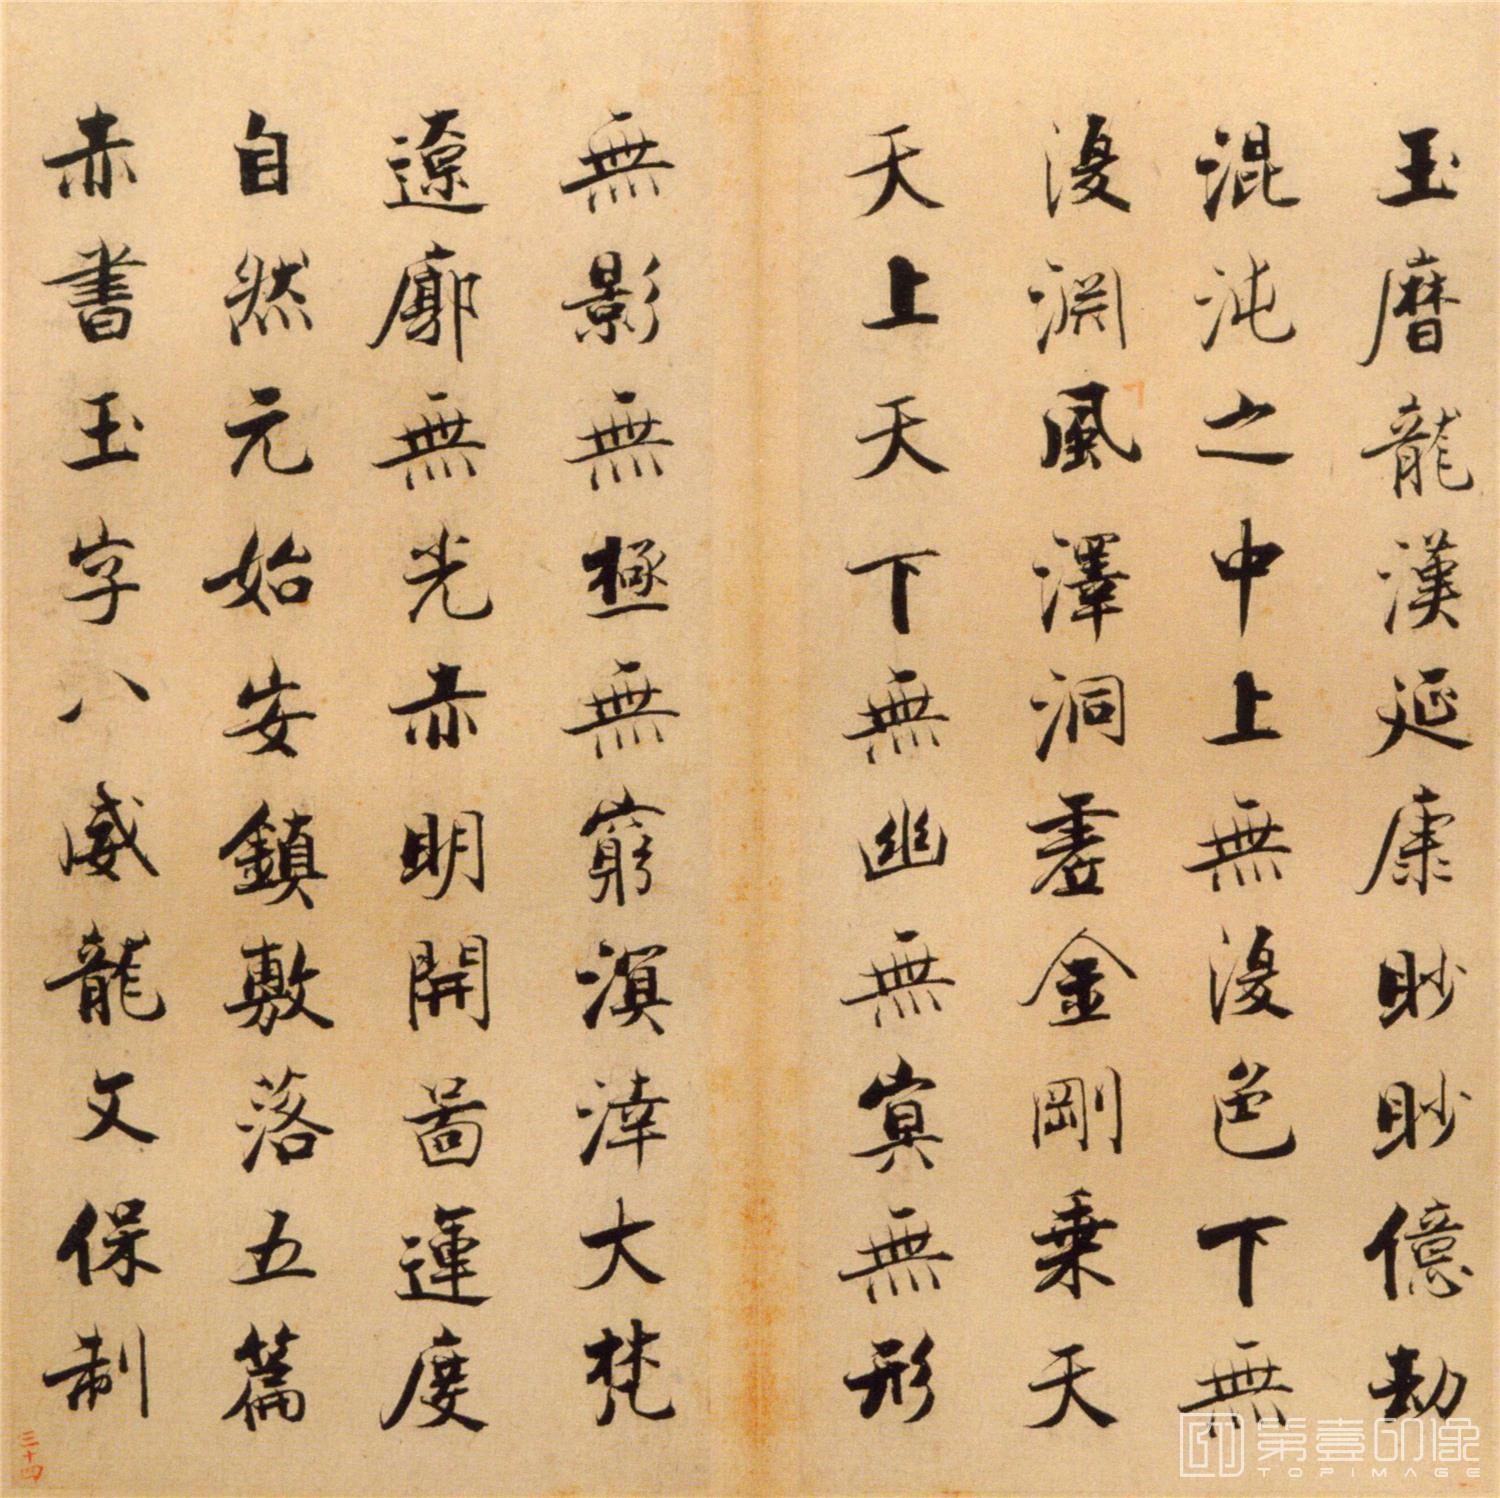 玉曆龍漢延康眇眇億劫
混沌之中上無澓色下無
澓淵風澤洞虛金剛乘天
天上天下無幽無冥無形
無影無極無窮溟涬大梵
遼廓無光赤明開啚運度
自然元始安鎮敷落五篇
赤書玉字八威龍文保制
三十四
第壹印像
TOPIMAGE